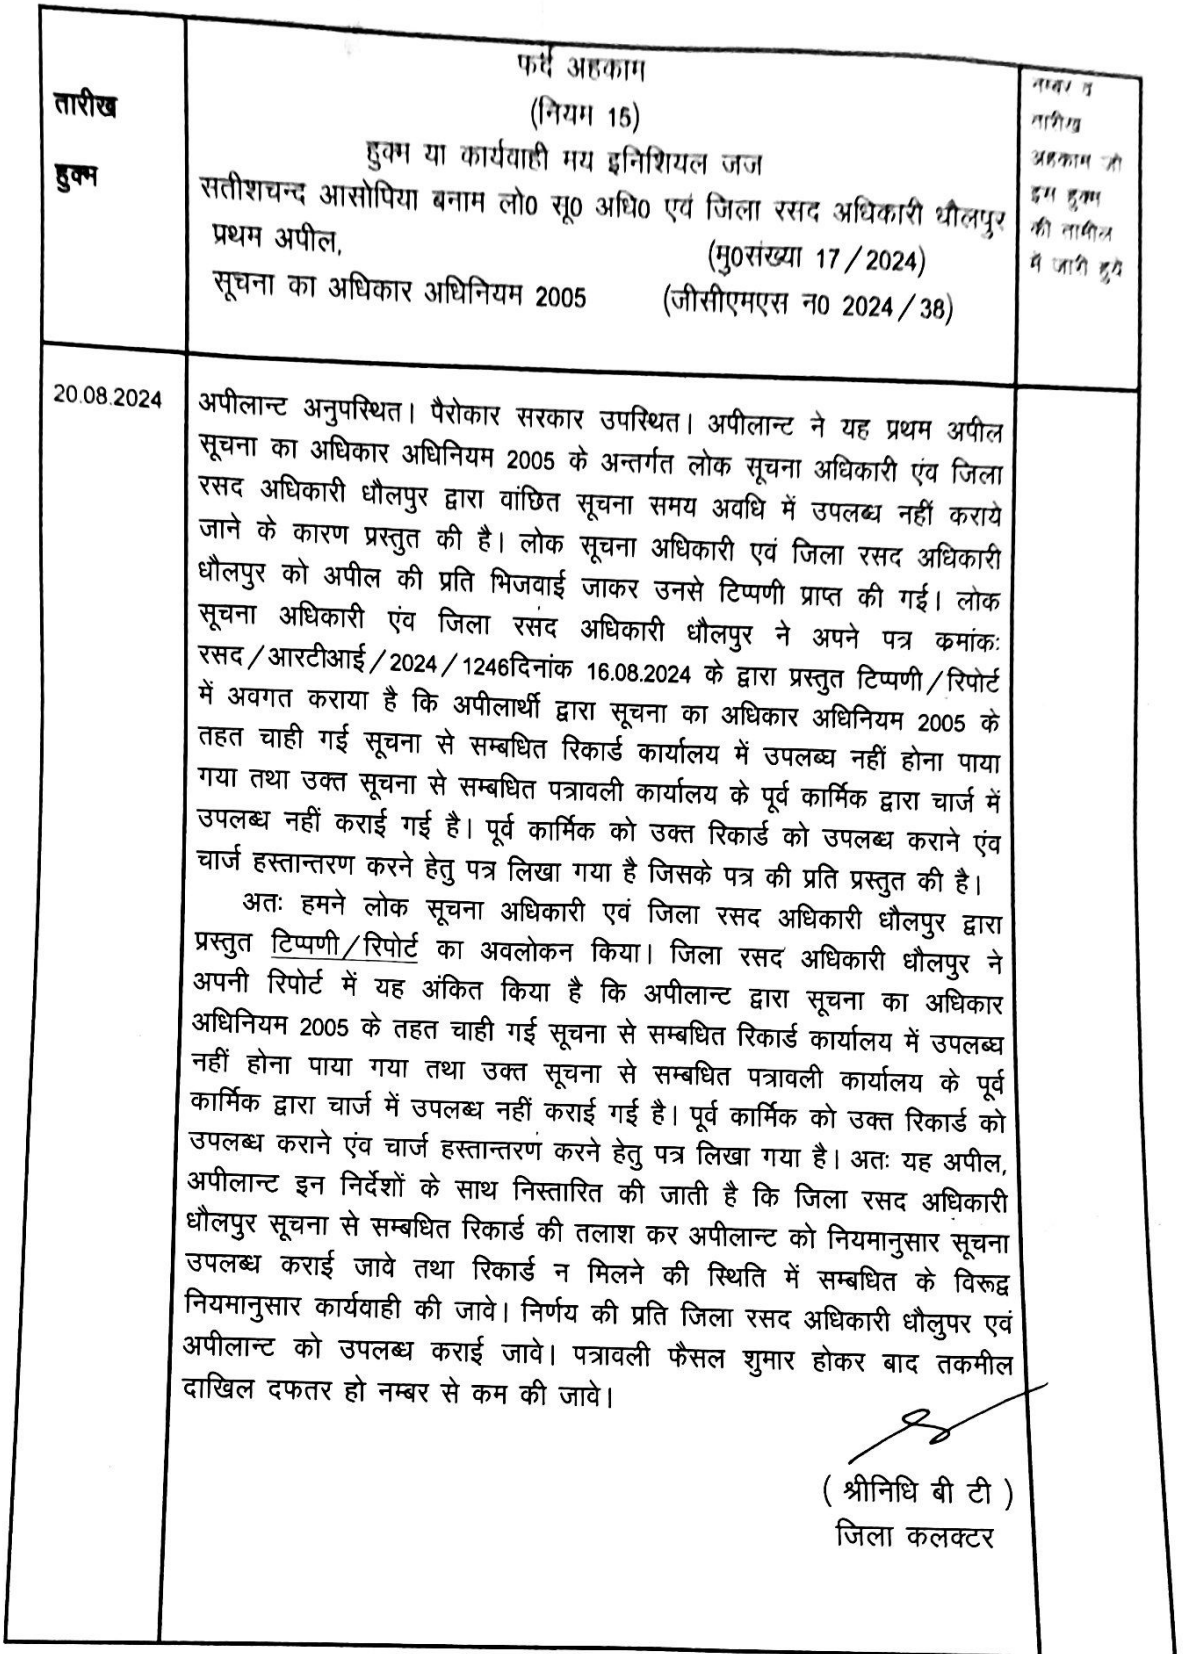 फर्द अहकाम
(नियम 15)
हुक्म या कार्यवाही मय इनिशियल जज
तारीख
हुक्म
सतीशचन्द आसोपिया बनाम लो0 सू0 अधि0 एवं जिला रसद अधिकारी धौलपुर
प्रथम अपील,
(मु0संख्या 17/2024)
सूचना का अधिकार अधिनियम 2005
(जीसीएमएस न0 2024/38)
नम्बर व
तारीख
अहकाम जो
इस हुक्म
की तामील
में जारी हुये
20.08.2024
अपीलान्ट अनुपस्थित। पैरोकार सरकार उपस्थित। अपीलान्ट ने यह प्रथम अपील
सूचना का अधिकार अधिनियम 2005 के अन्तर्गत लोक सूचना अधिकारी एंव जिला
रसद अधिकारी धौलपुर द्वारा वांछित सूचना समय अवधि में उपलब्ध नहीं कराये
जाने के कारण प्रस्तुत की है। लोक सूचना अधिकारी एवं जिला रसद अधिकारी
धौलपुर को अपील की प्रति भिजवाई जाकर उनसे टिप्पणी प्राप्त की गई। लोक
सूचना अधिकारी एंव जिला रसद अधिकारी धौलपुर ने अपने पत्र कमांकः
रसद/आरटीआई/2024/1246दिनांक 16.08.2024 के द्वारा प्रस्तुत टिप्पणी/रिपोर्ट
में अवगत कराया है कि अपीलार्थी द्वारा सूचना का अधिकार अधिनियम 2005 के
तहत चाही गई सूचना से सम्बधित रिकार्ड कार्यालय में उपलब्घ नहीं होना पाया
गया तथा उक्त सूचना से सम्बधित पत्रावली कार्यालय के पूर्व कार्मिक द्वारा चार्ज में
उपलब्ध नहीं कराई गई है। पूर्व कार्मिक को उक्त रिकार्ड को उपलब्ध कराने एंव
चार्ज हस्तान्तरण करने हेतु पत्र लिखा गया है जिसके पत्र की प्रति प्रस्तुत की है।
अतः हमने लोक सूचना अधिकारी एवं जिला रसद अधिकारी धौलपुर द्वारा
प्रस्तुत टिप्पणी/रिपोर्ट का अवलोकन किया। जिला रसद अधिकारी धौलपुर ने
अपनी रिपोर्ट में यह अंकित किया है कि अपीलान्ट द्वारा सूचना का अधिकार
अधिनियम 2005 के तहत चाही गई सूचना से सम्बधित रिकार्ड कार्यालय में उपलब्घ
नहीं होना पाया गया तथा उक्त सूचना से सम्बधित पत्रावली कार्यालय के पूर्व
कार्मिक द्वारा चार्ज में उपलब्ध नहीं कराई गई है। पूर्व कार्मिक को उक्त रिकार्ड को
उपलब्ध कराने एंव चार्ज हस्तान्तरण करने हेतु पत्र लिखा गया है। अतः यह अपील,
अपीलान्ट इन निर्देशों के साथ निस्तारित की जाती है कि जिला रसद अधिकारी
धौलपुर सूचना से सम्बधित रिकार्ड की तलाश कर अपीलान्ट को नियमानुसार सूचना
उपलब्ध कराई जावे तथा रिकार्ड न मिलने की स्थिति में सम्बधित के विरूद्व
नियमानुसार कार्यवाही की जावे। निर्णय की प्रति जिला रसद अधिकारी धौलुपर एवं
अपीलान्ट को उपलब्ध कराई जावे। पत्रावली फैसल शुमार होकर बाद तकमील
दाखिल दफतर हो नम्बर से कम की जावे।
( श्रीनिधि बी टी )
जिला कलक्टर